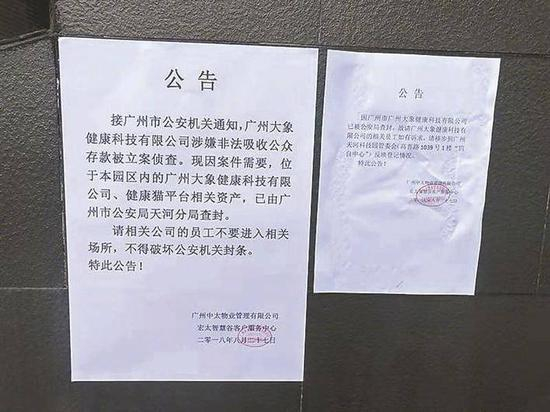 公告
接广州市公安机关通知，广州大象
健康科技有限公司涉嫌非法吸收公众
存款被立案侦查。现因案件需要，位
于本园区内的广州大象健康科技有限
公司、健康猫平台相关资产，已由广
州市公安局天河分局查封。
请相关公司的员工不要进入相关
场所，不得破坏公安机关封条。
特此公告！
广州中太物业管理有限公司
宏太智慧谷客户服务中心
二零一八年八月二十七日
公告
因广州市广州大象健康科技有限公司
已被公安局查封，故请广州大象健康科技有
限公司的相关员工如有诉求，请移步到广州
天河科技园管委会(高普路1039号1楼
自中心"）反映登记情况。
特此公告！
广州中太物业管理有限公司
宏太智慧谷客户服务中心